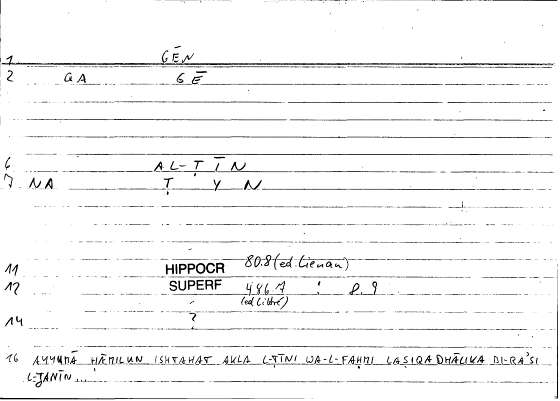 1 GĒN
2 GA GĒ
6 AL-ṬĪN
7 NA Ṭ Y N
11 HIPPOCR 80.8 (ed Lienau)
12 SUPERF 486.7 : 8.9
(ed Littré)
14 ?
16 AYYUMĀ ḤĀMILUN ISHTAHAT AKLA L-ṬĪNI WA-L-FAḤMI LAṢIQA DHĀLIKA BI-RA'SI
L-JANĪN...